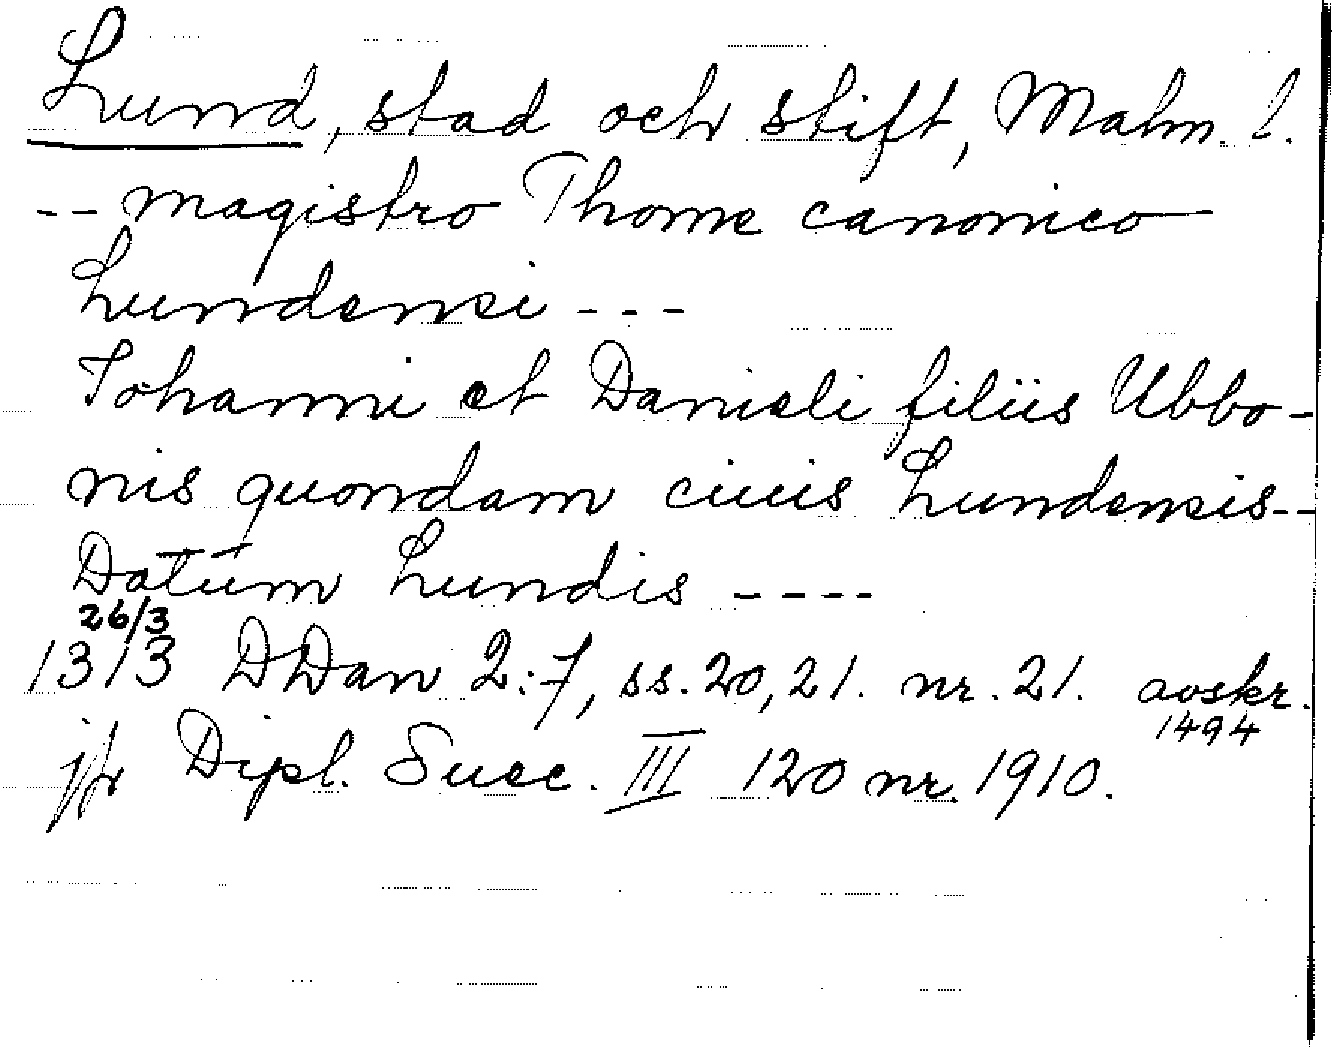 Lund, stad och stift, Malm. l.
-- magistro Thome canonico
Lundensi ---
Iohanni et Danieli filiis Ubbo-
nis quondam ciuis Lundensis--
Datum Lundis ----
26/3
1313 DDan 2:7, ss. 20, 21. nr. 21. avskr.
1494
jfr Dipl. Suec. III 120 nr. 1910.